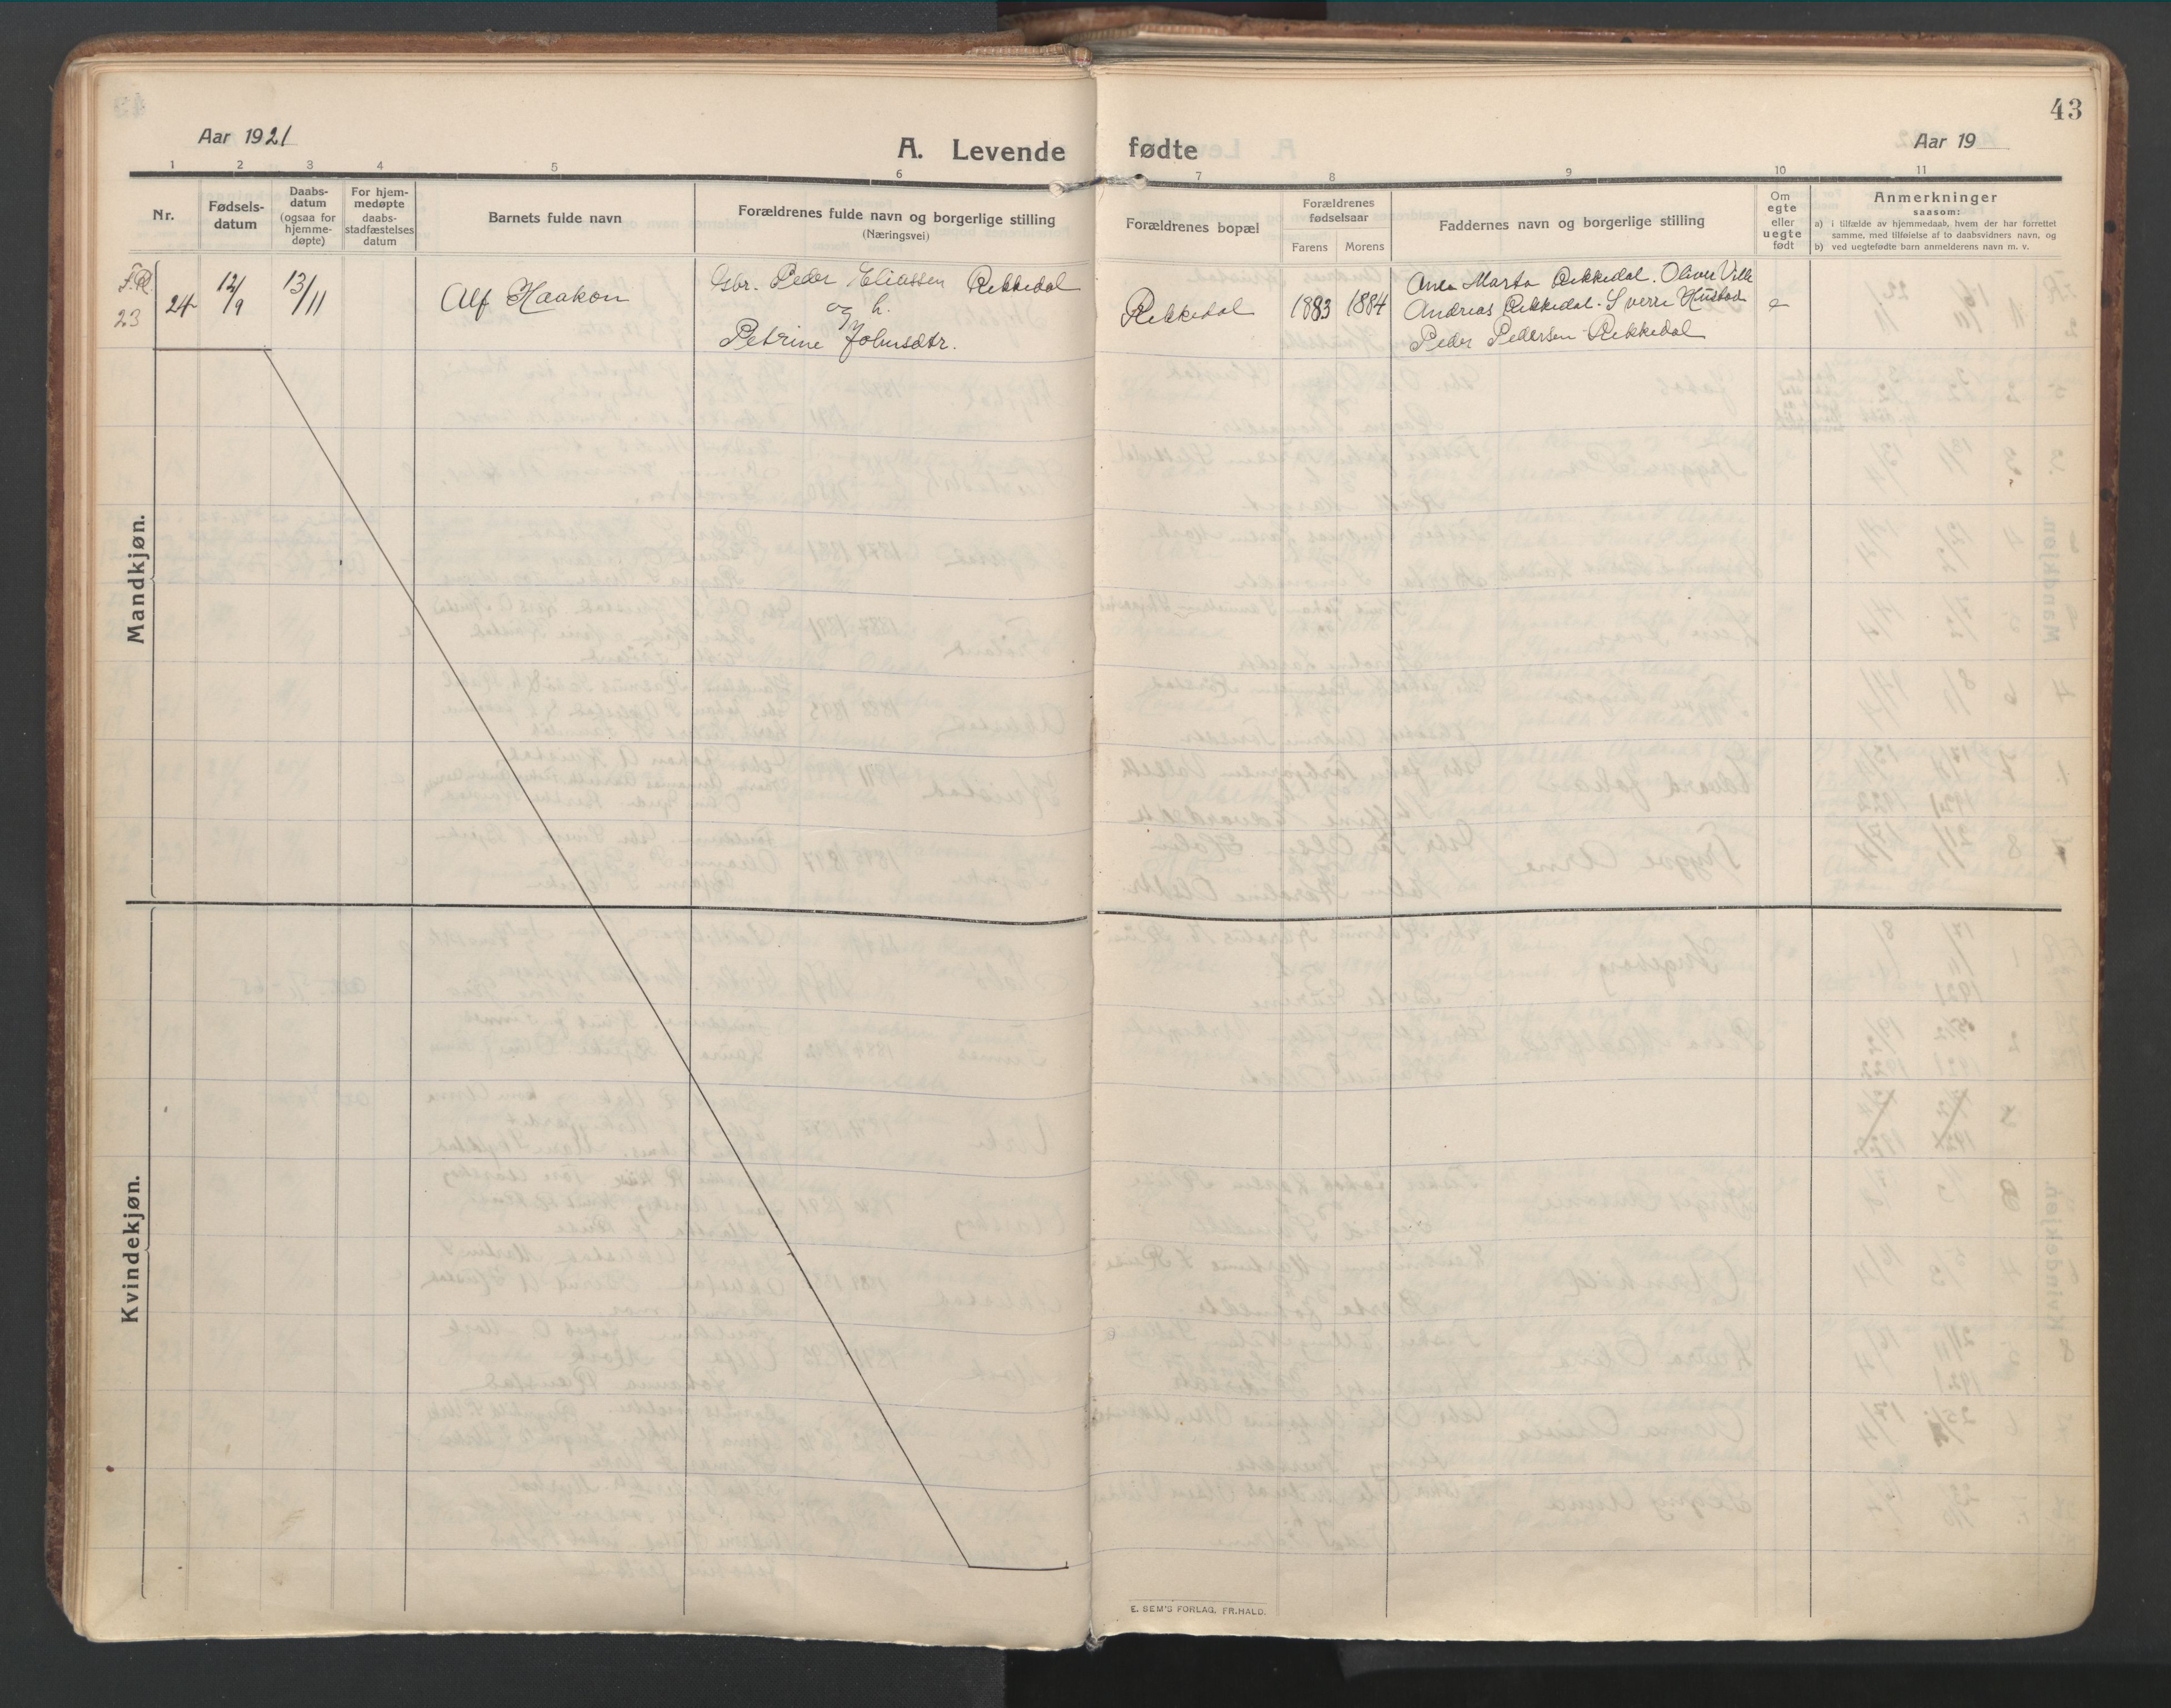 43
Aar 1921
A. Levende fødte
Aar 19
1 2 3 4 5 6 7 8 9 10 11
Nr.
Fødsels-
datum
Daabs-
datum
(ogsaa for
hjemme-
døpte)
For hjem-
medøpte
daabs-
stadfæstelses
datum
Barnets fulde navn
Forældrenes fulde navn og borgerlige stilling
(Næringsvei)
Forældrenes bopæl
Forældrenes
fødselsaar
Farens Morens
Faddernes navn og borgerlige stilling
Om
egte
eller
uegte
født
Anmerkninger
saasom:
a) i tilfælde av hjemmedaab, hvem der har forrettet
samme, med tilføielse af to daabsvidners navn, og
b) ved uegtefødte barn anmelderens navn m. v.
Mandkjøn.
23
24
12/9
13/11
Alf Haakon
Gbr. Peder Eliassen Rekkedal
og h.
Petrine Johnsdtr.
Rekkedal
1883 1884
Ane Marta Rekkedal. Oliver Velle
Andreas Rekkedal. Sverre Hustad
Peder Pedersen Rekkedal
e
Kvindekjøn.
E. SEM'S FORLAG, FR.HALD.